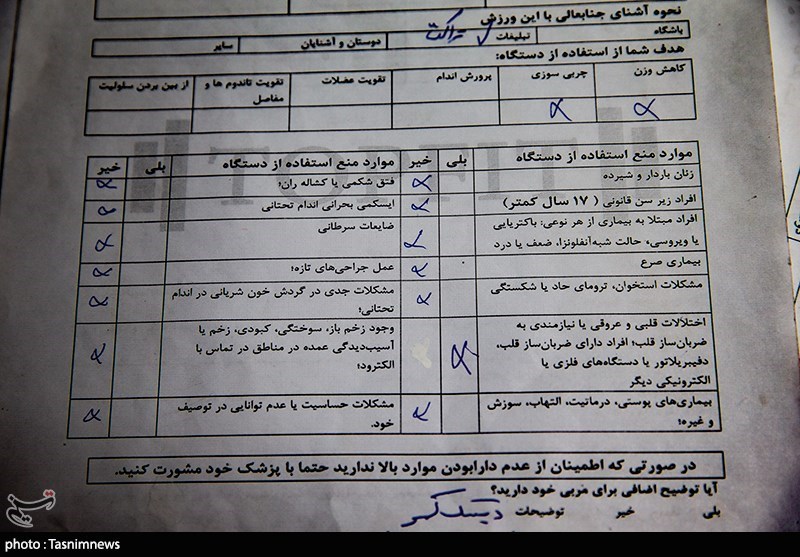 نحوه آشنای جنابعالی با این ورزش
باشگاه تبلیغات تراکت دوستان و آشنایان سایر
هدف شما از استفاده از دستگاه:
کاهش وزن چربی سوزی پرورش اندام تقویت عضلات تقویت تاندوم ها و مفاصل از بین بردن سلولیت
موارد منع استفاده از دستگاه بلی خیر موارد منع استفاده از دستگاه بلی خیر
زنان باردار و شیرده فتق شکمی یا کشاله ران؛
افراد زیر سن قانونی ( ۱۷ سال کمتر) ایسکمی بحرانی اندام تحتانی
افراد مبتلا به بیماری از هر نوعی: باکتریایی ضایعات سرطانی
یا ویروسی، حالت شبه‌آنفلونزا، ضعف یا درد
بیماری صرع عمل جراحی‌های تازه؛
مشکلات استخوان، ترومای حاد یا شکستگی مشکلات جدی در گردش خون شریانی در اندام
تحتانی؛
اختلالات قلبی و عروقی یا نیازمندی به وجود زخم باز، سوختگی، کبودی، زخم یا
ضربان‌ساز قلب؛ افراد دارای ضربان‌ساز قلب، آسیب‌دیدگی عمده در مناطق در تماس با
دفیبریلاتور یا دستگاه‌های فلزی یا الکترود؛
الکترونیکی دیگر
بیماری‌های پوستی، درماتیت، التهاب، سوزش مشکلات حساسیت یا عدم توانایی در توصیف
و غیره؛ خود.
در صورتی که اطمینان از عدم دارابودن موارد بالا ندارید حتما با پزشک خود مشورت کنید.
آیا توضیح اضافی برای مربی خود دارید؟
بلی خیر توضیحات دیسک کمر
تسنیم
photo : Tasnimnews